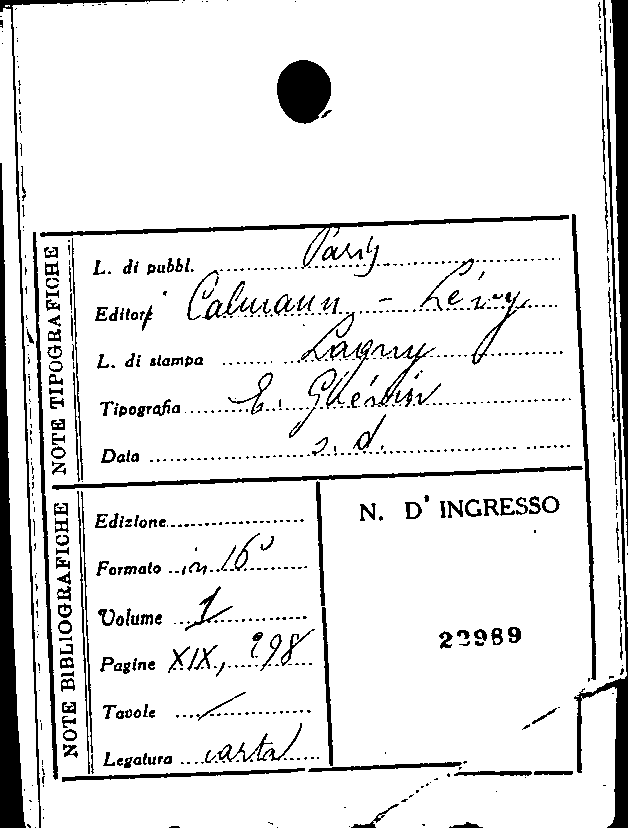 NOTE TIPOGRAFICHE
L. di pubbl. Paris
Editore Calmann - Lévy
L. di stampa Lagny
Tipografia E. Grévin
Data s. d.
NOTE BIBLIOGRAFICHE
Edizione
Formato in 16°
Volume 1
Pagine XIX, 298
Tavole /
Legatura carta
N. D' INGRESSO
22989